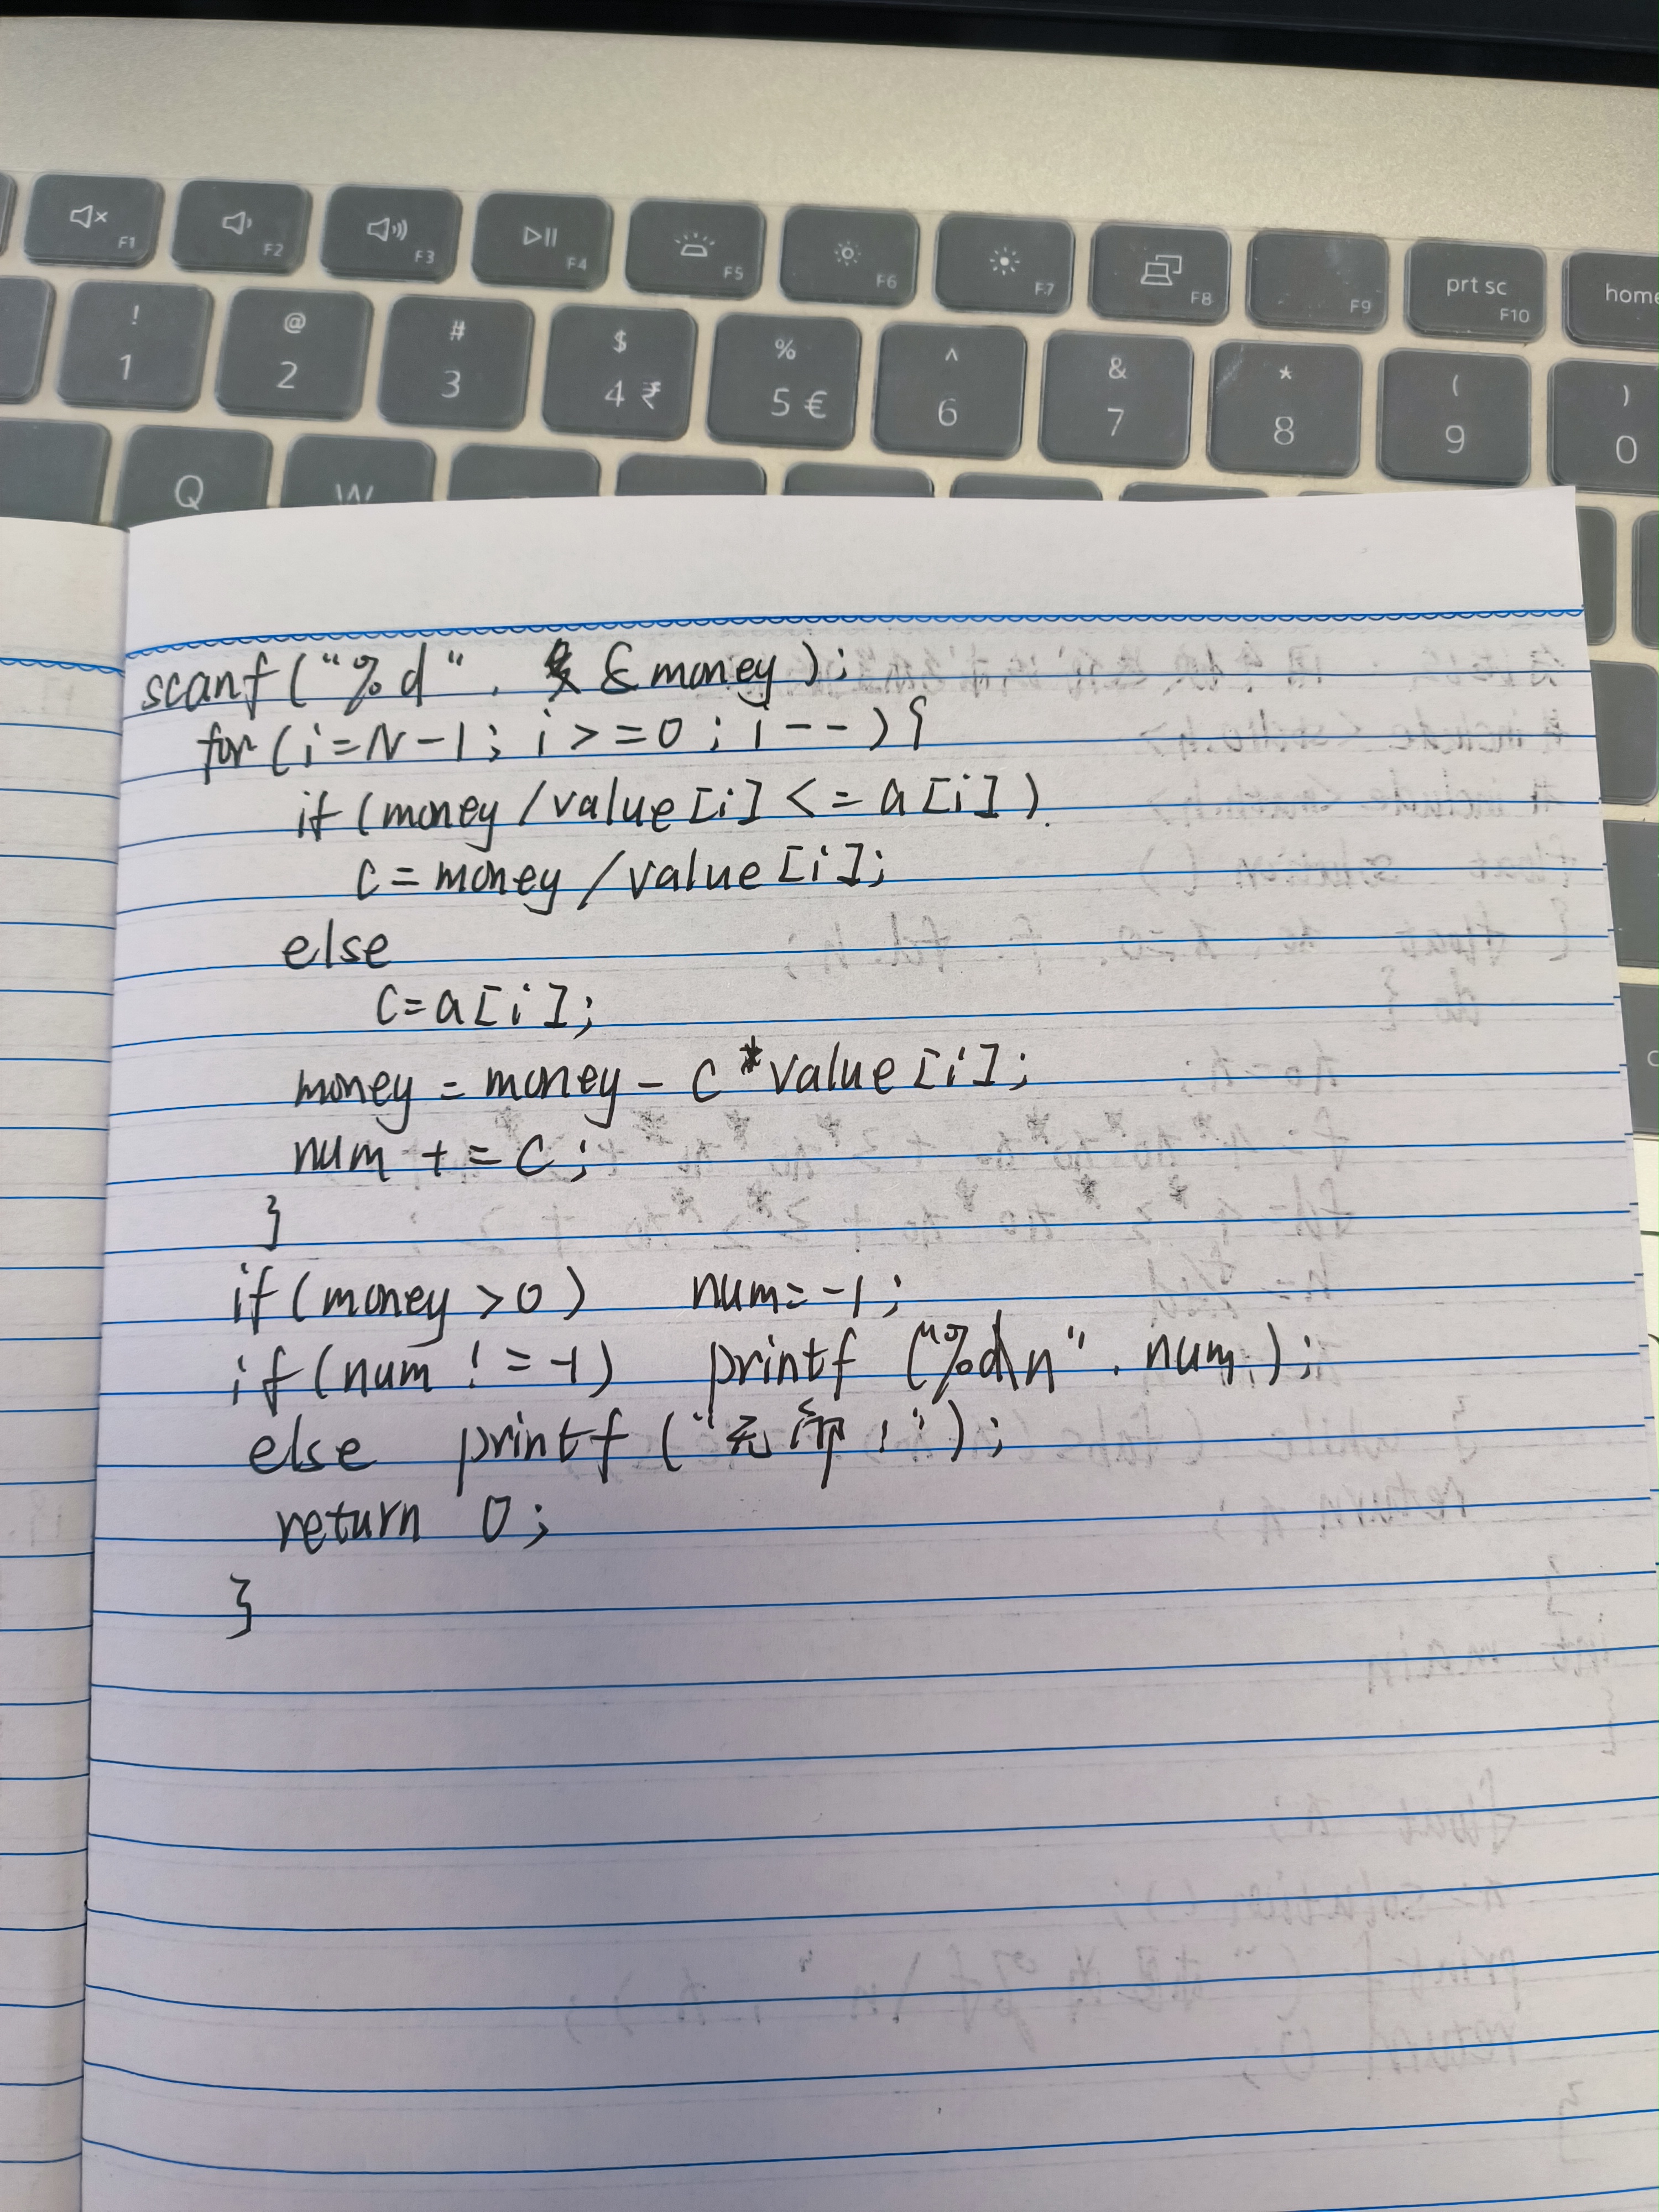 F1 F2 F3 F4 F5 F6 F7 F8 F9 prt sc F10 home
! 1 @ 2 # 3 $ 4 ₹ % 5 € ^ 6 & 7 * 8 ( 9 ) 0
Q W
scanf ("%d", &money);
for (i=N-1; i>=0; i--) {
if (money/value[i] <= a[i])
c=money/value[i];
else
c=a[i];
money = money - c*value[i];
num += c;
}
if (money >0) num=-1;
if (num != -1) printf ("%d\n", num);
else printf ("无 !");
return 0;
}